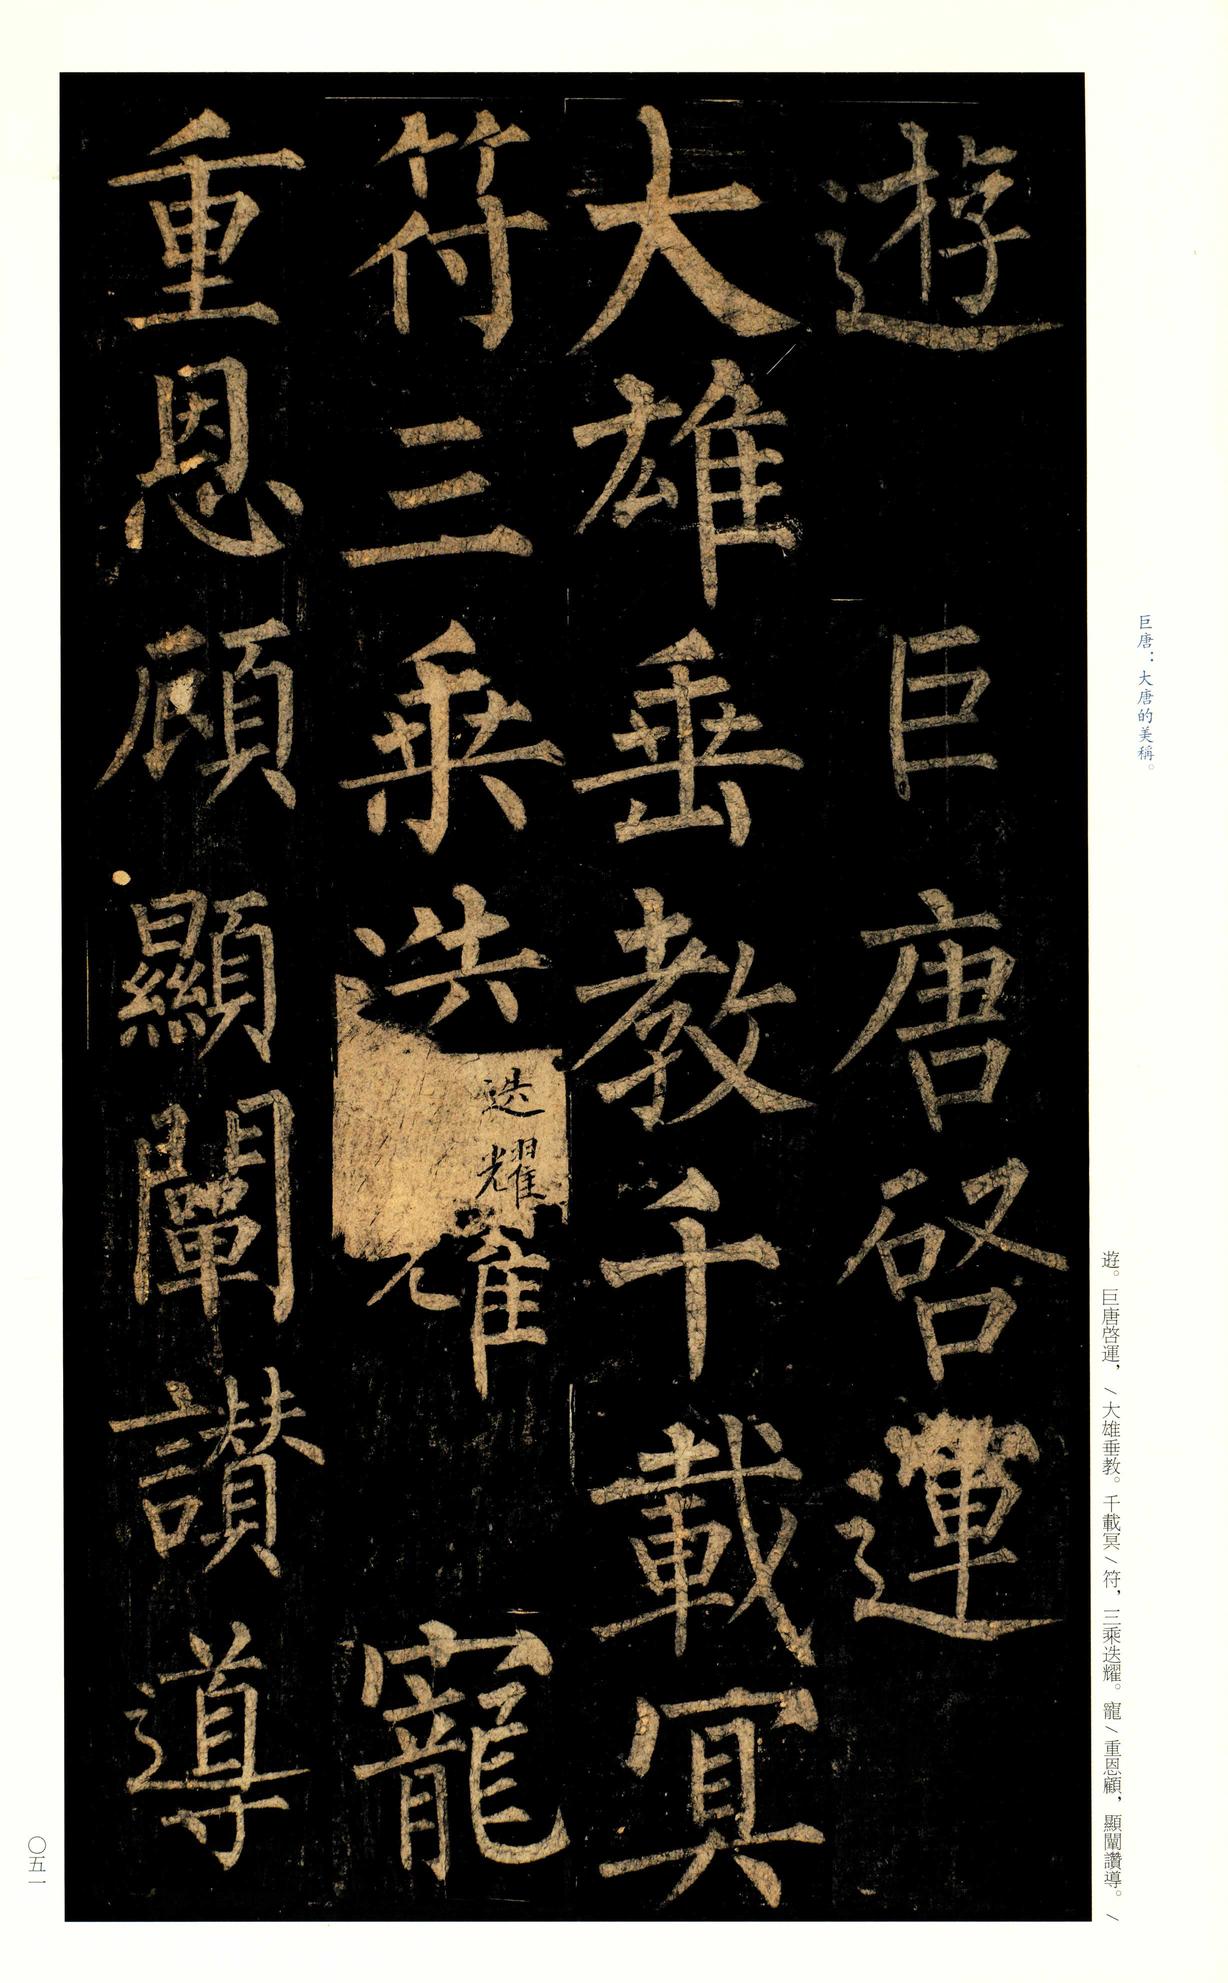 巨唐：大唐的美稱。
遊。巨唐啓運，/大雄垂教。千載冥/符，三乘迭耀。寵/重恩顧，顯闡讚導。/
遊 巨唐啓運
大雄垂教千載冥
符三乘迭耀 寵
迭耀
重恩顧顯闡讚導
〇五一